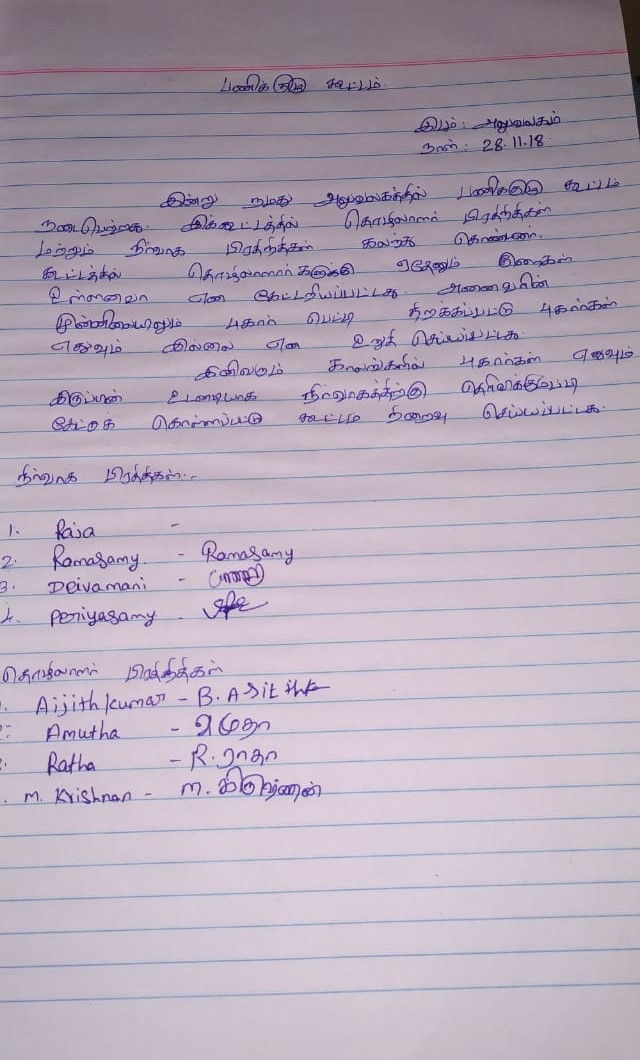 பணிக்குழு கூட்டம்
இடம் : அலுவலகம்
நாள் : 28.11.18
இன்று நமது அலுவலகத்தில் பணிக்குழு கூட்டம்
நடைபெற்றது. இக்கூட்டத்தில் தொழிலாளர் பிரதிநிதிகள்
மற்றும் நிர்வாக பிரதிநிதிகள் கலந்து கொண்டனர்.
கூட்டத்தில் தொழிலாளர்களுக்கு ஏதேனும் குறைகள்
உள்ளனவா என கேட்டறியப்பட்டது. அனைவரின்
முன்னிலையிலும் புகார் பெட்டி திறக்கப்பட்டு புகார்கள்
எதுவும் இல்லை என உறுதி செய்யப்பட்டது.
இனிவரும் காலங்களில் புகார்கள் எதுவும்
இருப்பின் உடனடியாக நிர்வாகத்திற்கு தெரிவிக்கும்படி
கேட்டுக் கொள்ளப்பட்டு கூட்டம் நிறைவு செய்யப்பட்டது.
நிர்வாக பிரதிநிதிகள்:-
1. Raja -
2. Ramasamy - Ramasamy
3. Deivamani -
4. Periyasamy -
தொழிலாளர் பிரதிநிதிகள்
. Aijith kumar - B. Asith
2. Amutha - அமுதா
. Ratha - R. ராதா
. M. Krishnan - M. கிருஷ்ணன்